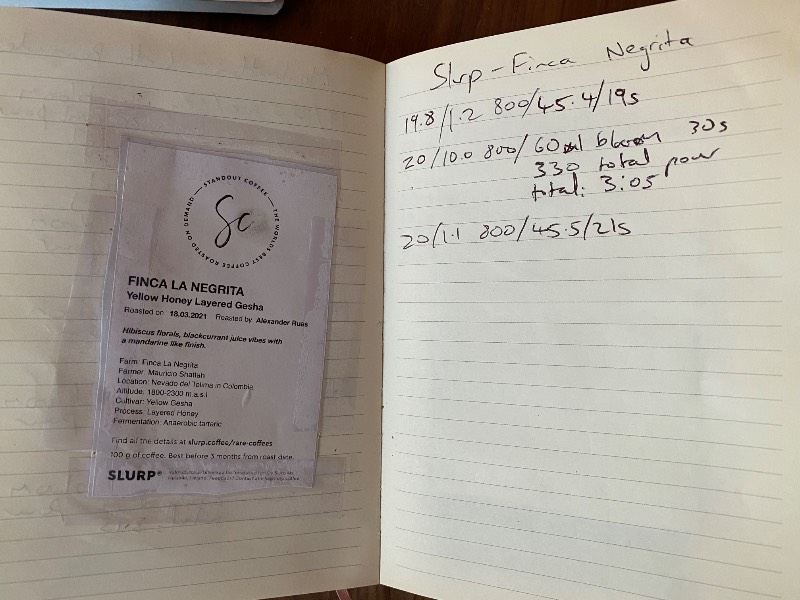 STANDOUT COFFEE — THE WORLDS BEST COFFEE ROASTED ON DEMAND —
Sc
FINCA LA NEGRITA
Yellow Honey Layered Gesha
Roasted on 18.03.2021 Roasted by Alexander Ruas
Hibiscus florals, blackcurrant juice vibes with
a mandarine like finish.
Farm: Finca La Negrita
Farmer: Mauricio Shattah
Location: Nevado del Tolima in Colombia
Altitude: 1890-2300 m.a.s.l
Cultivar: Yellow Gesha
Process: Layered Honey
Fermentation: Anaerobic tarteric
Find all the details at slurp.coffee/rare-coffees
100 g of coffee. Best before 3 months from roast date.
SLURP®
Slurp - Finca Negrita
19.8/1.2 800/45.4/19s
20/10.0 800/60ml bloom 30s
330 total pour
total: 3:05
20/1.1 800/45.5/21s